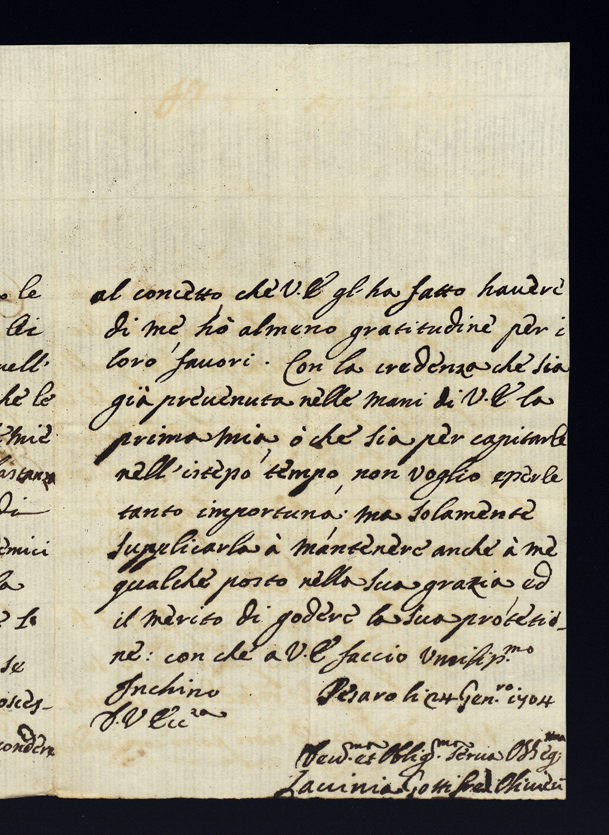 al concetto che V.E gl'ha fatto havere
di me hò almeno gratitudine per i
loro favori. Con la credenza che sia
già prevenuta nelle mani di V.E la
prima mia, ò che sia per capitarle
nell'istesso tempo, non voglio esserle
tanto importuna: ma solamente
supplicarla à mantenere anche à me
qualche posto nella sua grazia ed
il merito di godere la sua protetio-
ne: con che a V.E faccio umiliss.mo
Inchino Pesaro li 24 Gen.ro 1704
D.V Ecc.za
Dev.ma et Oblig.ma Serva Osseq.ma
Lavinia Gottifredi Olivieri
le
lei
uell'
he le
mie
istanza
di
emici
la
se